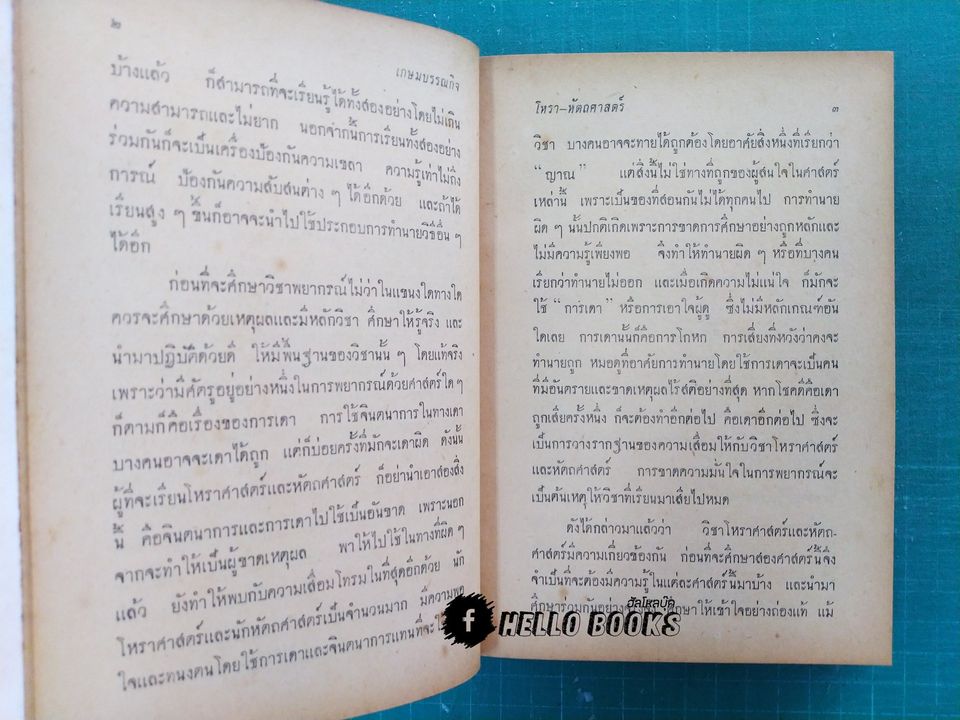 ๒
เกษมบรรณกิจ
บ้างแล้ว ก็สามารถที่จะเรียนรู้ได้ทั้งสองอย่างโดยไม่เกิน
ความสามารถและไม่ยาก นอกจากนี้การเรียนทั้งสองอย่าง
ร่วมกันก็จะเป็นเครื่องป้องกันความเขลา ความรู้เท่าไม่ถึง
การณ์ ป้องกันความสับสนต่าง ๆ ได้อีกด้วย และถ้าได้
เรียนสูง ๆ ขึ้นก็อาจจะนำไปใช้ประกอบการทำนายวิธีอื่น ๆ
ได้อีก
ก่อนที่จะศึกษาวิชาพยากรณ์ไม่ว่าในแขนงใดทางใด
ควรจะศึกษาด้วยเหตุผลและมีหลักวิชา ศึกษาให้รู้จริง และ
นำมาปฏิบัติด้วยดี ให้มีพื้นฐานของวิชานั้น ๆ โดยแท้จริง
เพราะว่ามีศัตรูอยู่อย่างหนึ่งในการพยากรณ์ด้วยศาสตร์ใด ๆ
ก็ตามก็คือเรื่องของการเดา การใช้จินตนาการในทางเดา
บางคนอาจจะเดาได้ถูก แต่ก็บ่อยครั้งที่มักจะเดาผิด ดังนั้น
ผู้ที่จะเรียนโหราศาสตร์และหัตถศาสตร์ ก็อย่านำเอาสองสิ่ง
นี้ คือจินตนาการและการเดาไปใช้เป็นอันขาด เพราะนอก
จากจะทำให้เป็นผู้ขาดเหตุผล พาให้ไปใช้ในทางที่ผิด ๆ
แล้ว ยังทำให้พบกับความเสื่อมโทรมในที่สุดอีกด้วย นัก
โหราศาสตร์และนักหัตถศาสตร์เป็นจำนวนมาก มีความพอ
ใจและทนงตนโดยใช้การเดาและจินตนาการแทนที่จะ
โหรา–หัตถศาสตร์ ๓
วิชา บางคนอาจจะทายได้ถูกต้องโดยอาศัยสิ่งหนึ่งที่เรียกว่า
“ญาณ” แต่สิ่งนี้ไม่ใช่ทางที่ถูกของผู้สนใจในศาสตร์
เหล่านี้ เพราะเป็นของที่สอนกันไม่ได้ทุกคนไป การทำนาย
ผิด ๆ นั้นปกติเกิดเพราะการขาดการศึกษาอย่างถูกหลักและ
ไม่มีความรู้เพียงพอ จึงทำให้ทำนายผิด ๆ หรือที่บางคน
เรียกว่าทำนายไม่ออก และเมื่อเกิดความไม่แน่ใจ ก็มักจะ
ใช้ “การเดา” หรือการเอาใจผู้ดู ซึ่งไม่มีหลักเกณฑ์อัน
ใดเลย การเดานั้นก็คือการโกหก การเสี่ยงที่หวังว่าคงจะ
ทำนายถูก หมอดูที่อาศัยการทำนายโดยใช้การเดาจะเป็นคน
ที่มีอันตรายและขาดเหตุผลไร้สติอย่างที่สุด หากโชคดีคือเดา
ถูกเสียครั้งหนึ่ง ก็จะต้องทำอีกต่อไป คือเดาอีกต่อไป ซึ่งจะ
เป็นการวางรากฐานของความเสื่อมให้กับวิชาโหราศาสตร์
และหัตถศาสตร์ การขาดความมั่นใจในการพยากรณ์จะ
เป็นต้นเหตุให้วิชาที่เรียนมาเสียไปหมด
ดังได้กล่าวมาแล้วว่า วิชาโหราศาสตร์และหัตถ-
ศาสตร์มีความเกี่ยวข้องกัน ก่อนที่จะศึกษาสองศาสตร์นี้จึง
จำเป็นที่จะต้องมีความรู้ในแต่ละศาสตร์นี้มาบ้าง และนำมา
ศึกษารวมกันอย่าง ศึกษาให้เข้าใจอย่างถ่องแท้ แม้
ฮัลโหลบุ๊ค
f HELLO BOOKS